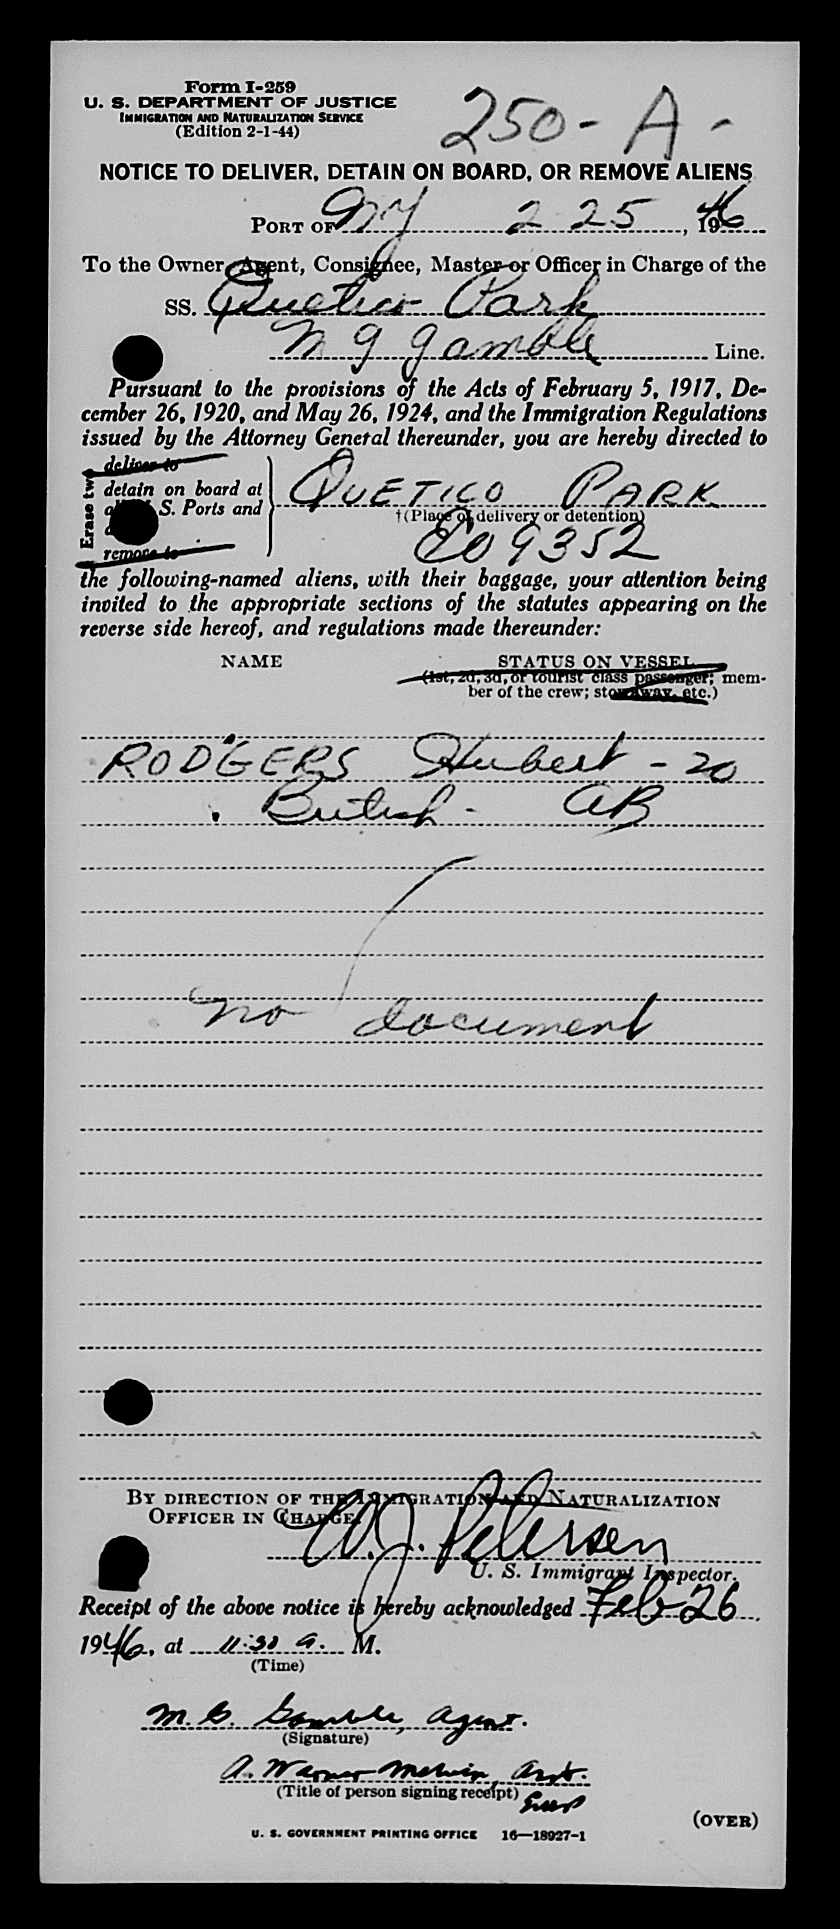 Form I-259
U. S. DEPARTMENT OF JUSTICE
IMMIGRATION AND NATURALIZATION SERVICE
(Edition 2-1-44)
250-A-
NOTICE TO DELIVER, DETAIN ON BOARD, OR REMOVE ALIENS
PORT OF NY 2 25, 1946
To the Owner, Agent, Consignee, Master or Officer in Charge of the
SS. Quetico Park
M G Gamble Line.
Pursuant to the provisions of the Acts of February 5, 1917, De-
cember 26, 1920, and May 26, 1924, and the Immigration Regulations
issued by the Attorney General thereunder, you are hereby directed to
Erase two
deliver to
detain on board at
S. Ports and
remove to
QUETICO PARK
†(Place of delivery or detention)
09352
the following-named aliens, with their baggage, your attention being
invited to the appropriate sections of the statutes appearing on the
reverse side hereof, and regulations made thereunder:
NAME STATUS ON VESSEL
(1st, 2d, 3d, or tourist class passenger; mem-
ber of the crew; stowaway, etc.)
RODGERS Hubert - 20
British - AB
no document
BY DIRECTION OF THE IMMIGRATION AND NATURALIZATION
OFFICER IN CHARGE:
W. J. Petersen
U. S. Immigrant Inspector.
Receipt of the above notice is hereby acknowledged Feb 26,
1946, at 11:30 a. M.
(Time)
M. G. Gamble, Agent.
(Signature)
A. Warner
(Title of person signing receipt)
(OVER)
U. S. GOVERNMENT PRINTING OFFICE 16—18927-1